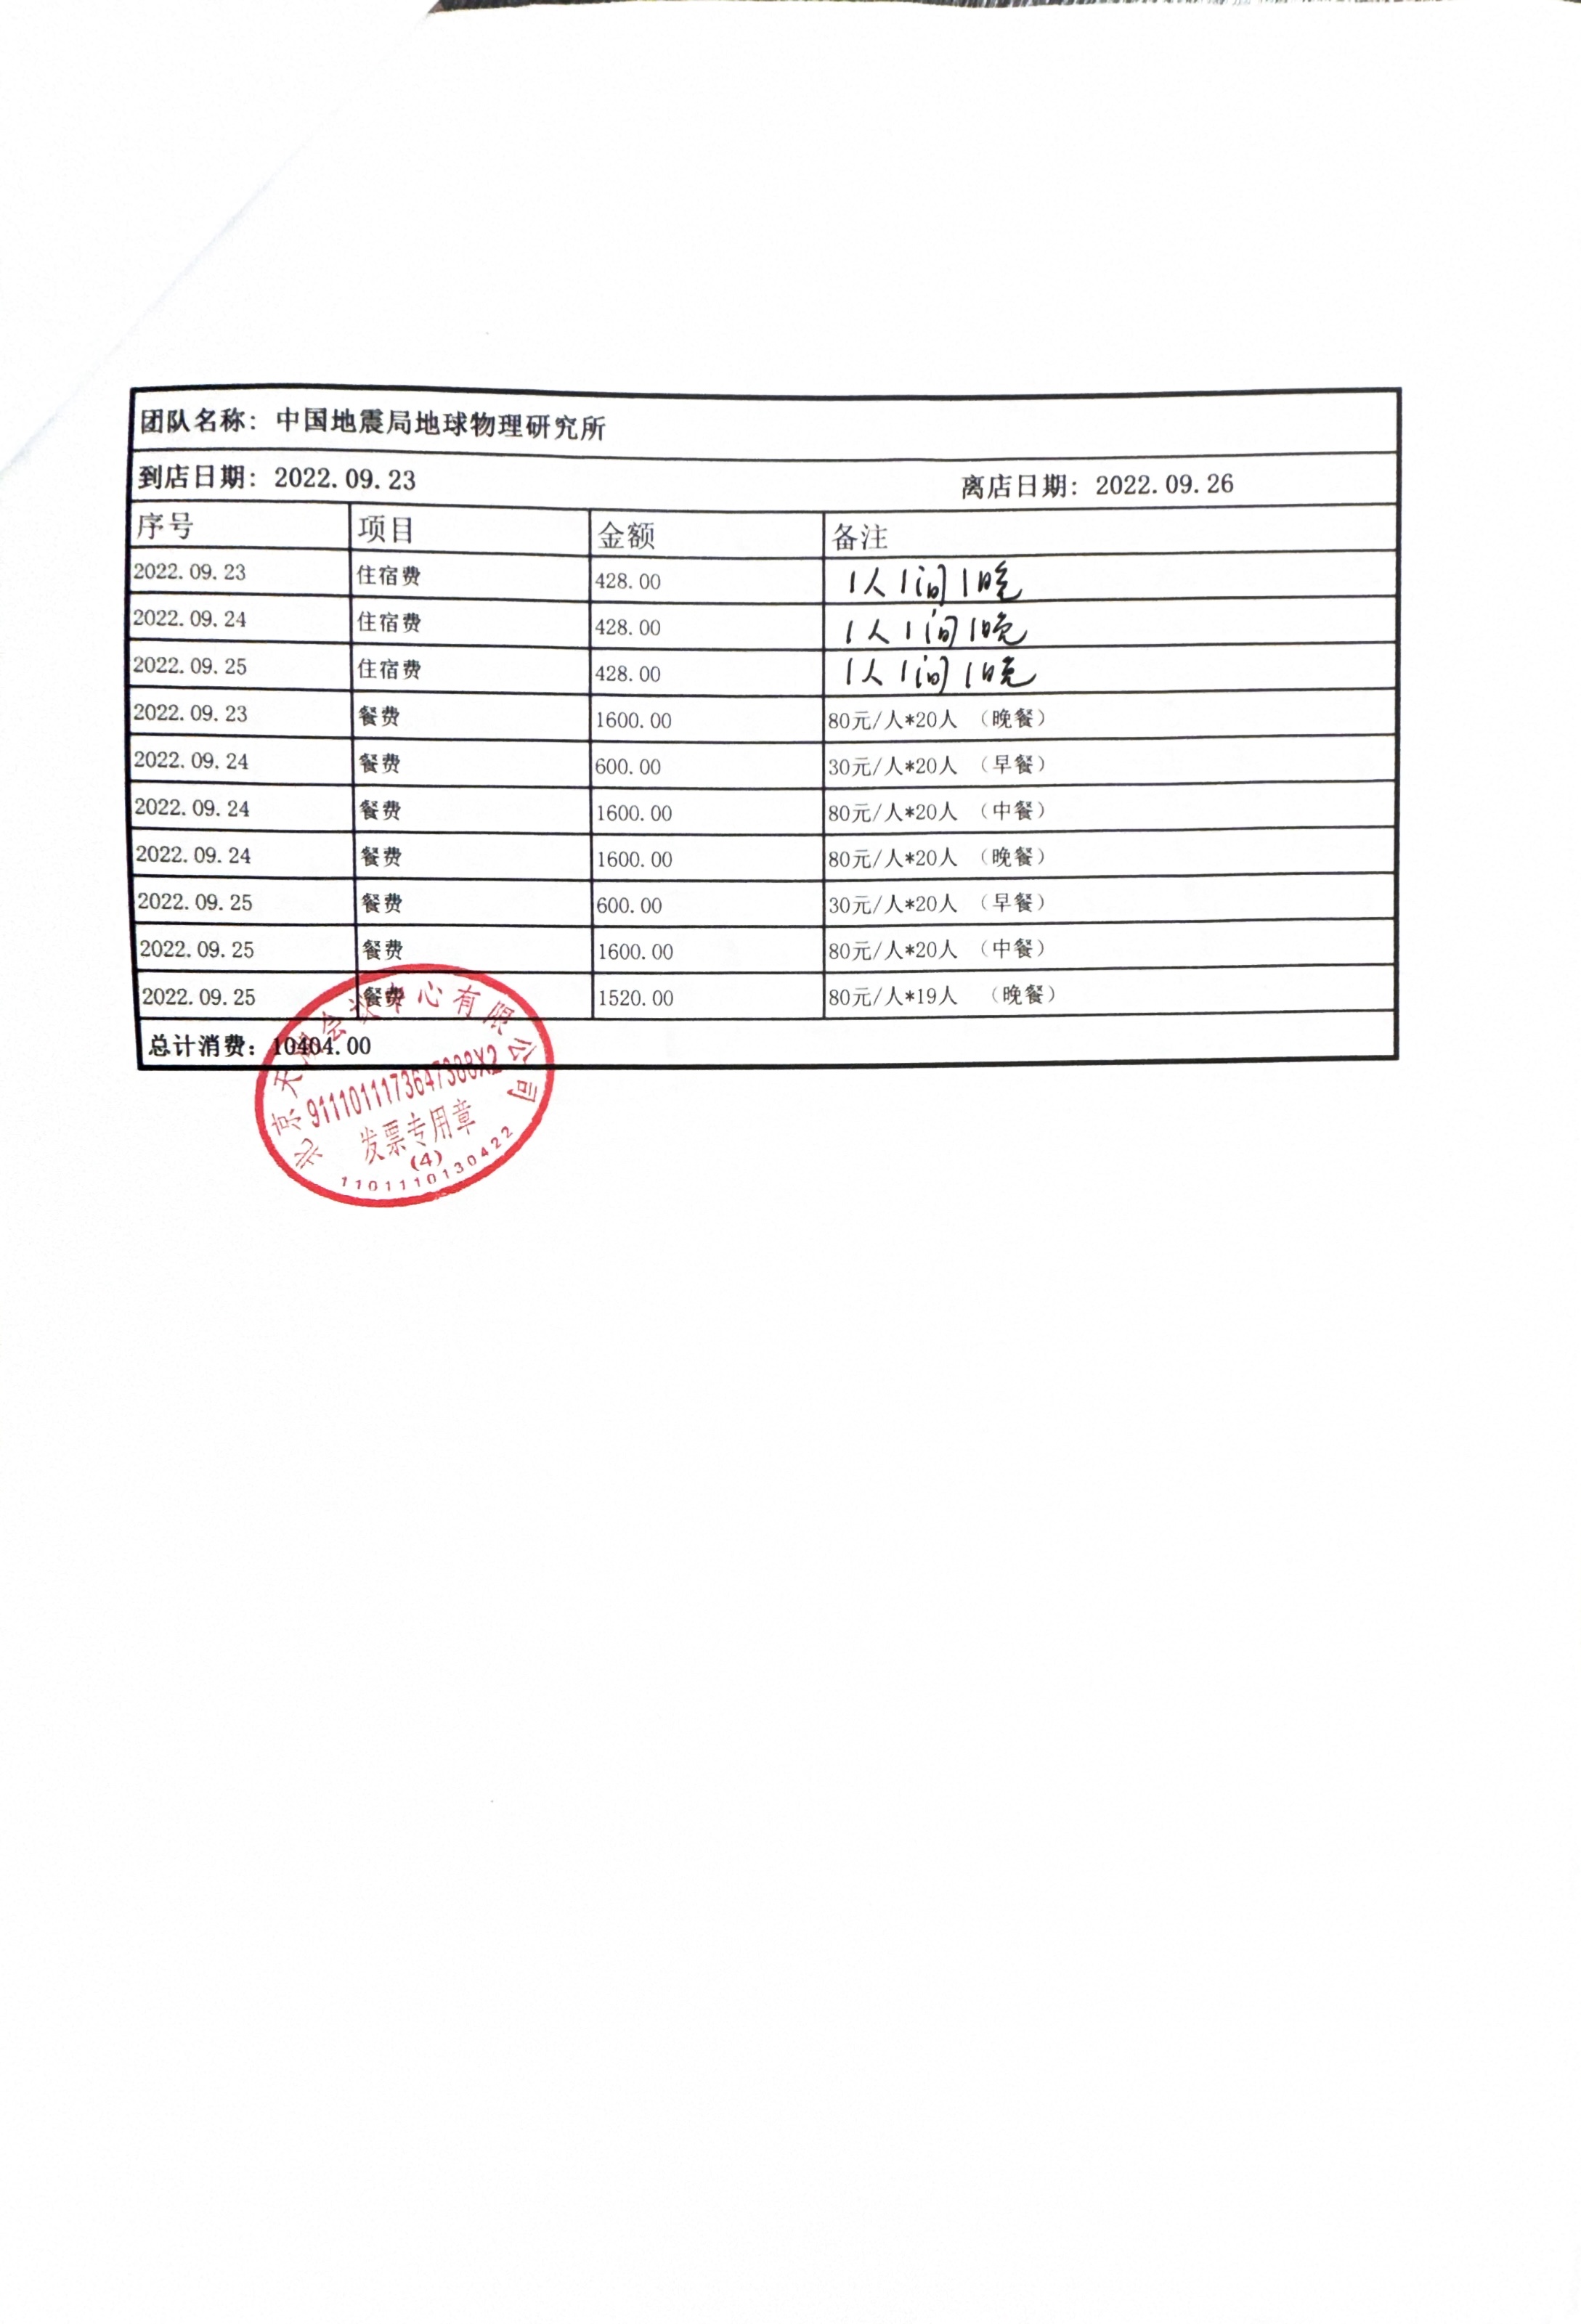 团队名称: 中国地震局地球物理研究所
到店日期: 2022.09.23 离店日期: 2022.09.26
序号 项目 金额 备注
2022.09.23 住宿费 428.00 1人1间1晚
2022.09.24 住宿费 428.00 1人1间1晚
2022.09.25 住宿费 428.00 1人1间1晚
2022.09.23 餐费 1600.00 80元/人*20人 （晚餐）
2022.09.24 餐费 600.00 30元/人*20人 （早餐）
2022.09.24 餐费 1600.00 80元/人*20人 （中餐）
2022.09.24 餐费 1600.00 80元/人*20人 （晚餐）
2022.09.25 餐费 600.00 30元/人*20人 （早餐）
2022.09.25 餐费 1600.00 80元/人*20人 （中餐）
2022.09.25 餐费 1520.00 80元/人*19人 （晚餐）
总计消费: 10404.00
北京天 会议中心有限公司
9111011173647388X2
发票专用章
(4)
1101110130422